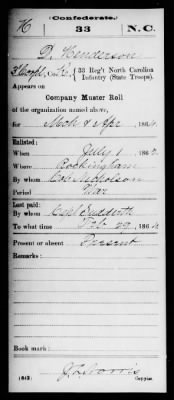 (Confederate.)
H 33 N.C.
D. Henderson
Co. , 33 Reg't North Carolina
Infantry (State Troops).
Appears on
Company Muster Roll
of the organization named above,
for Mch & Apr, 1864.
Enlisted:
When July 1, 1862.
Where Rockingham
By whom Col. Nicholson
Period War
Last paid:
By whom Capt Sudderth
To what time Feb 29, 1864.
Present or absent Present
Remarks:
Book mark:
(642) Copyist.